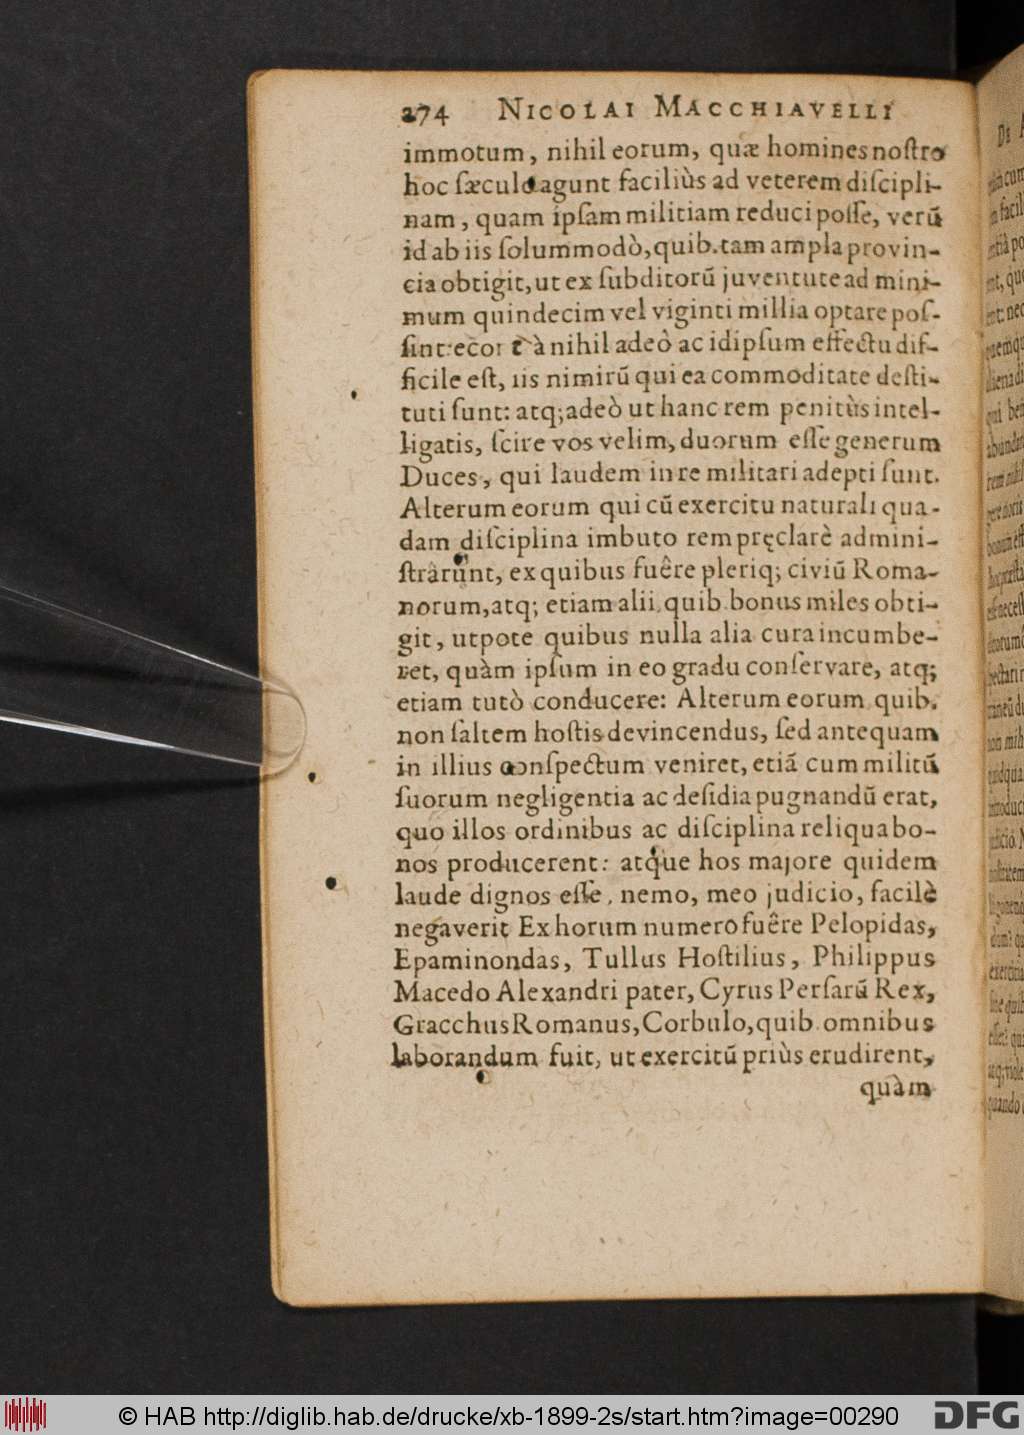 274 NICOLAI MACCHIAVELLI
immotum, nihil eorum, quæ homines noſtro
hoc ſæculo agunt faciliùs ad veterem diſcipli-
nam, quam ipſam militiam reduci poſſe, verũ
id ab iis ſolummodò, quib. tam ampla provin-
cia obtigit, ut ex ſubditorũ juventute ad mini-
mum quindecim vel viginti millia optare poſ-
ſint: à nihil adeò ac idipſum effectu dif-
ficile eſt, iis nimirũ qui ea commoditate deſti-
tuti ſunt: atq; adeò ut hanc rem penitùs intel-
ligatis, ſcire vos velim, duorum eſſe generum
Duces, qui laudem in re militari adepti ſunt.
Alterum eorum qui cũ exercitu naturali qua-
dam diſciplina imbuto rem pręclarè admini-
ſtrârunt, ex quibus fuêre pleriq; civiũ Roma-
norum, atq; etiam alii, quib. bonus miles obti-
git, utpote quibus nulla alia cura incumbe-
ret, quàm ipſum in eo gradu conſervare, atq;
etiam tutò conducere: Alterum eorum quib.
non ſaltem hoſtis devincendus, ſed antequam
in illius conſpectum veniret, etiã cum militũ
ſuorum negligentia ac deſidia pugnandũ erat,
quo illos ordinibus ac diſciplina reliqua bo-
nos producerent: atque hos majore quidem
laude dignos eſſe, nemo, meo judicio, facilè
negaverit Ex horum numero fuêre Pelopidas,
Epaminondas, Tullus Hoſtilius, Philippus
Macedo Alexandri pater, Cyrus Perſarũ Rex,
Gracchus Romanus, Corbulo, quib. omnibus
laborandum fuit, ut exercitũ priùs erudirent,
quàm
© HAB http://diglib.hab.de/drucke/xb-1899-2s/start.htm?image=00290
DFG